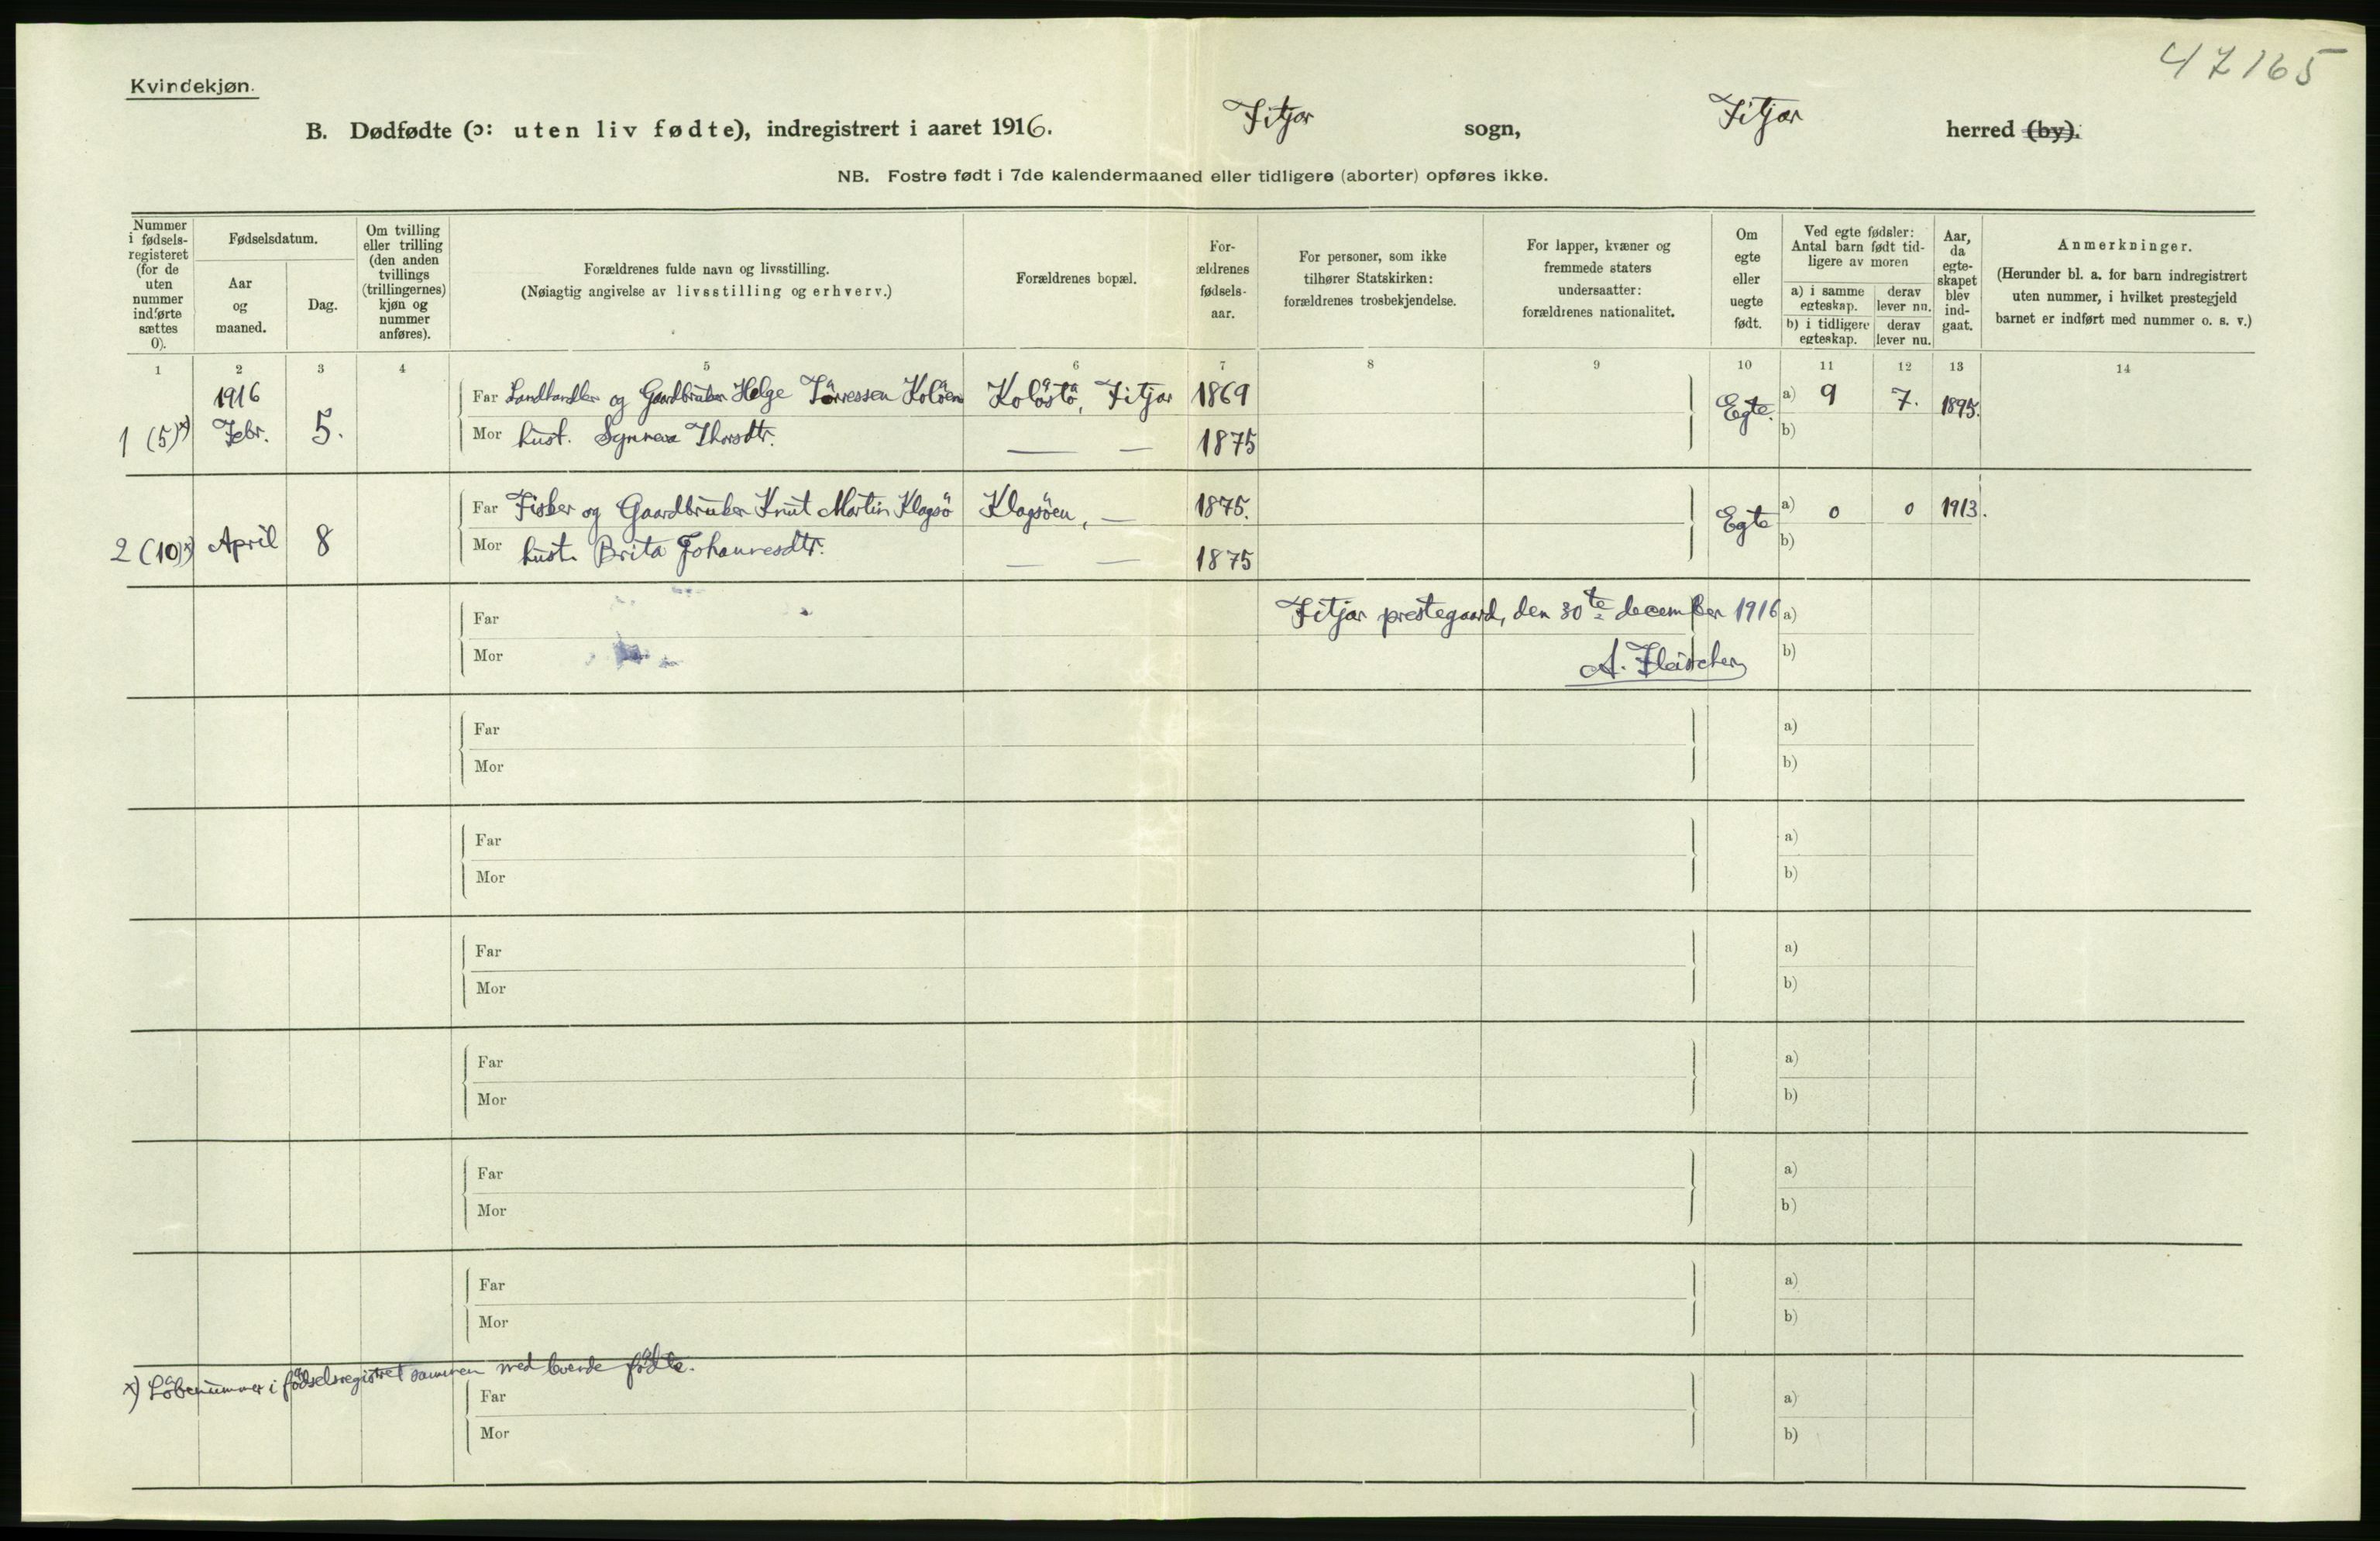 47165
Kvindekjøn.
B. Dødfødte (ɔ: uten liv fødte), indregistrert i aaret 1916. Fitjar sogn, Fitjar herred (by).
NB. Fostre født i 7de kalendermaaned eller tidligere (aborter) opføres ikke.
Nummer i fødsels-registeret (for de uten nummer indførte sættes 0).
Fødselsdatum.
Aar og maaned.
Dag.
Om tvilling eller trilling (den anden tvillings (trillingernes) kjøn og nummer anføres).
Forældrenes fulde navn og livsstilling.
(Nøiagtig angivelse av livsstilling og erhverv.)
Forældrenes bopæl.
For-ældrenes fødsels-aar.
For personer, som ikke tilhører Statskirken: forældrenes trosbekjendelse.
For lapper, kvæner og fremmede staters undersaatter: forældrenes nationalitet.
Om egte eller uegte født.
Ved egte fødsler: Antal barn født tid-ligere av moren
a) i samme egteskap. derav lever nu.
b) i tidligere egteskap. derav lever nu.
Aar, da egte-skapet blev ind-gaat.
Anmerkninger.
(Herunder bl. a. for barn indregistrert uten nummer, i hvilket prestegjeld barnet er indført med nummer o. s. v.)
1 2 3 4 5 6 7 8 9 10 11 12 13 14
1916
1 (5)x) Febr. 5.
Far Landhandler og Gaardbruker Helge Kolöen Kolöstö, Fitjar 1869 Egte. a) 9 7. 1895.
Mor hust. Thorsdtr. — — 1875 b)
2 (10)x) April 8
Far Fisker og Gaardbruker Knut Martin Klagsö Klagsöen, — 1875. Egte a) 0 0 1913.
Mor hust. Brita Johannesdtr. — — 1875 b)
Far Fitjar prestegaard, den 30te december 1916 a)
Mor A. Fleischer b)
Far a)
Mor b)
Far a)
Mor b)
Far a)
Mor b)
Far a)
Mor b)
Far a)
Mor b)
Far a)
Mor b)
x) Löbenummer i födselsregistret sammen med levende födte.
Far a)
Mor b)